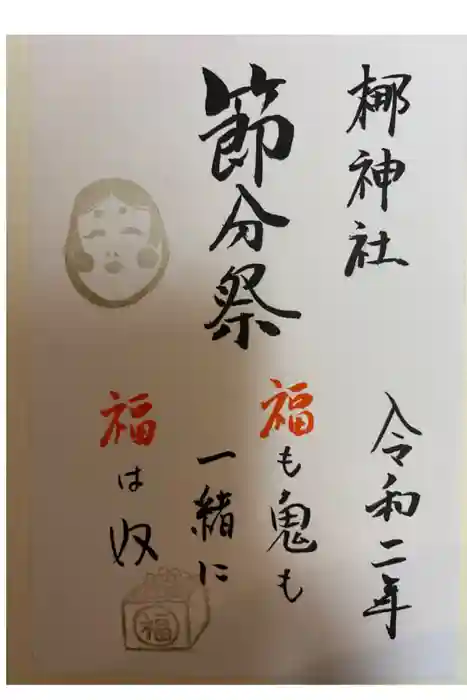 梛神社
令和二年
節分祭
福も鬼も
一緒に
福は
福